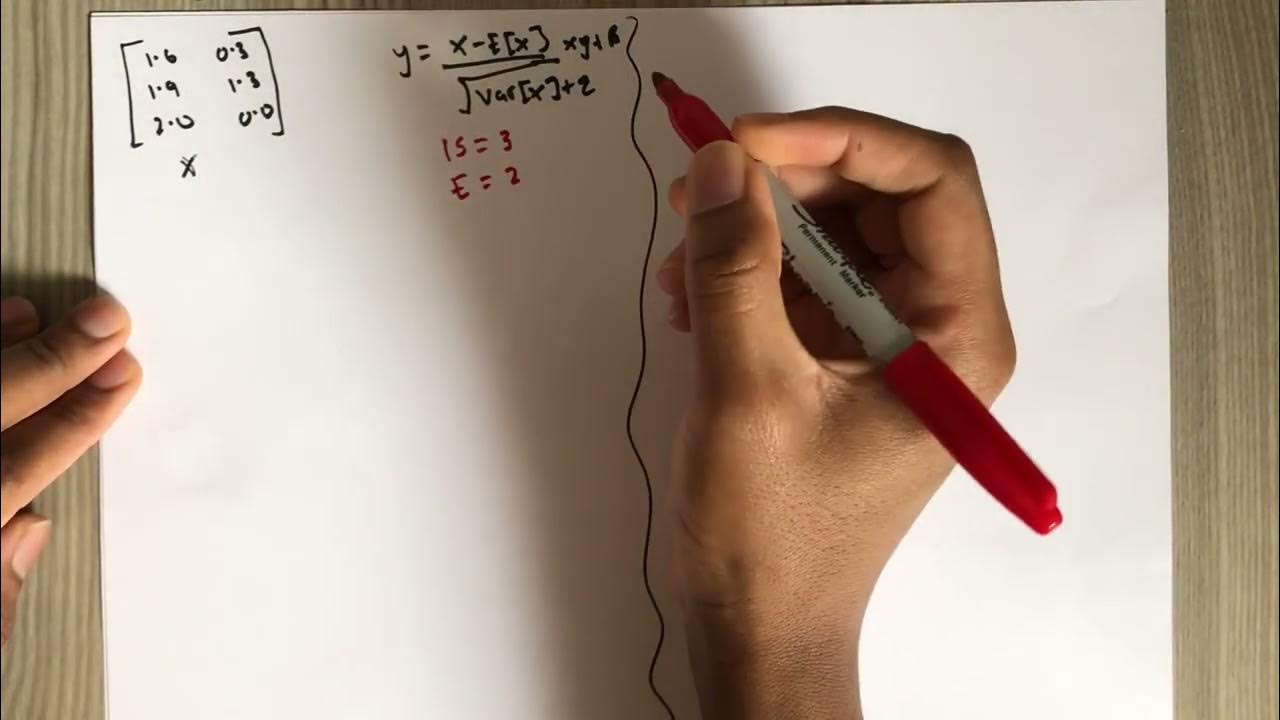 1.6 0.3
1.9 1.3
2.0 0.0
X
y = x - E[x] xy + B
√var[x] + 2
IS = 3
E = 2
Sharpie.
Permanent Marker